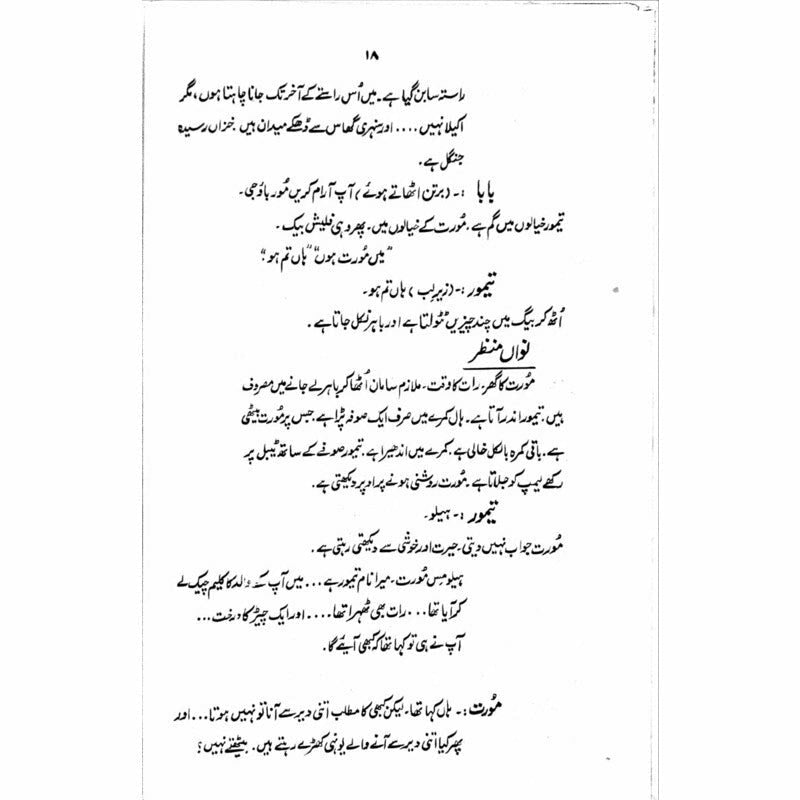 ۱۸
راستہ سا بن گیا ہے۔ میں اُس راستے کے آخر تک جانا چاہتا ہوں، مگر
اکیلا نہیں .... اور سنہری گھاس سے ڈھکے میدان ہیں خزاں رسیدہ
جنگل ہے۔
بابا :- (برتن اٹھاتے ہوئے) آپ آرام کریں مُور باؤجی۔
تیمور خیالوں میں گم ہے۔ مُورت کے خیالوں میں۔ پھر وہی فلیش بیک۔
"میں مُورت ہوں" "ہاں تم ہو"
تیمور :- (زیرِ لب) ہاں تم ہو۔
اُٹھ کر بیگ میں چند چیزیں ٹٹولتا ہے اور باہر نکل جاتا ہے۔
نواں منظر
مُورت کا گھر۔ رات کا وقت۔ ملازم سامان اُٹھا کر باہر لے جانے میں مصروف
ہیں۔ تیمور اندر آتا ہے۔ ہال کمرے میں صرف ایک صوفہ پڑا ہے جس پر مُورت بیٹھی
ہے۔ باقی کمرہ بالکل خالی ہے۔ کمرے میں اندھیرا ہے۔ تیمور صوفے کے ساتھ ٹیبل پر
رکھے لیمپ کو جلاتا ہے۔ مُورت روشنی ہونے پر اوپر دیکھتی ہے۔
تیمور :- ہیلو۔
مُورت جواب نہیں دیتی۔ حیرت اور خوشی سے دیکھتی رہتی ہے۔
ہیلو مس مُورت۔ میرا نام تیمور ہے ... میں آپ کے والد کا کلیم چیک لے
کر آیا تھا ... رات بھی ٹھہرا تھا .... اور ایک چیڑ کا درخت ...
آپ نے ہی تو کہا تھا کہ کبھی آئیے گا۔
مُورت :- ہاں کہا تھا۔ لیکن کبھی کا مطلب اتنی دیر سے آنا تو نہیں ہوتا ... اور
پھر کیا اتنی دیر سے آنے والے یونہی کھڑے رہتے ہیں۔ بیٹھتے نہیں؟